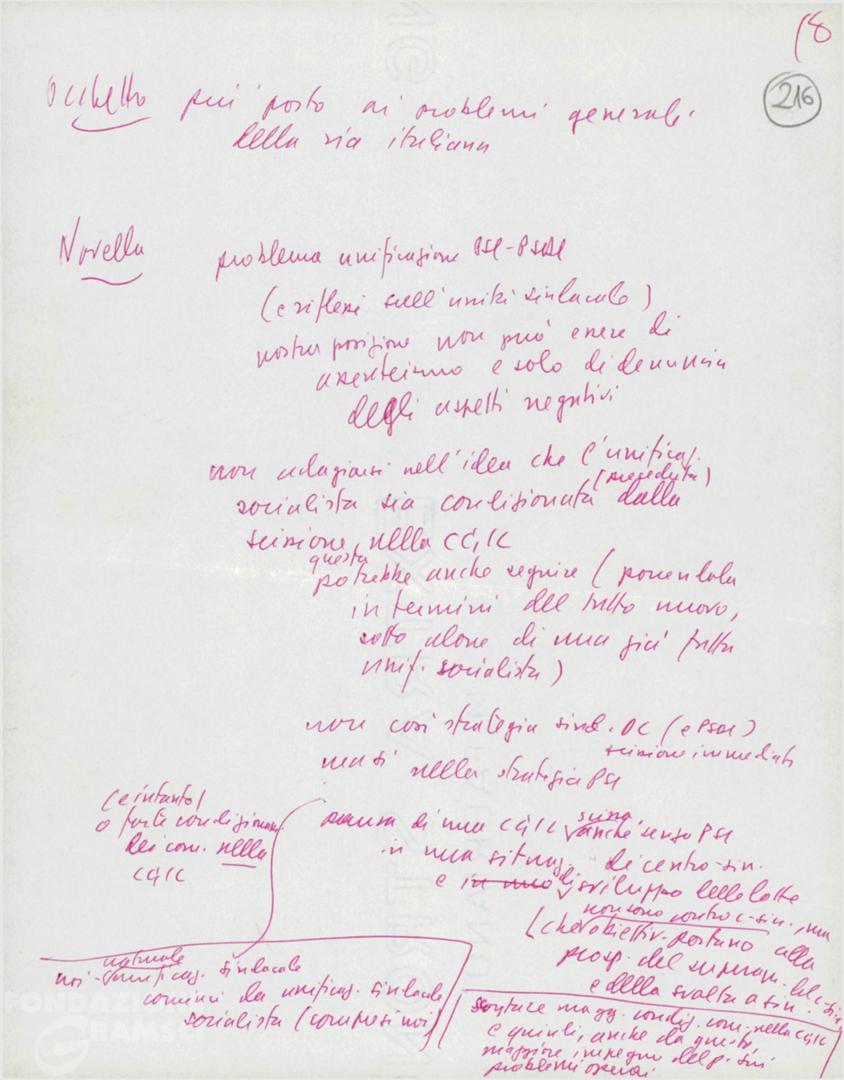 18
216
Occhetto più posto ai problemi generali
della via italiana
Novella problema unificazione PSI-PSDI
(e riflessi sull'unità sindacale)
nostra posizione non può essere di
assenteismo e solo di denuncia
degli aspetti negativi
non adagiarsi nell'idea che l'unificaz.
(preceduta)
socialista sia condizionata dalla
scissione nella CGIL
questa
potrebbe anche seguire (ponendola
in termini del tutto nuovo,
sotto alone di una già fatta
unif. socialista)
non così strategia sind. DC (e PSDI)
scissione immediata
ma sì nella strategia PSI
(e intanto)
o forte condizionam.
dei com. nella
CGIL
paura di una CGIL anche senza PSI
in una situaz. di centro-sin.
e in uno di sviluppo delle lotte
non sono contro c-sin., ma
(che obiettiv. portano alla
prosp. del superam. del c-sin
e della svolta a sin.
naturale
noi - unificaz. sindacale
cominci da unificaz. sindacale
socialista (compresi noi)
magg. condiz. com. nella CGIL
e quindi, anche da questo
maggiore impegno del p. sui
problemi operai
FONDAZIONE
GRAMSCI